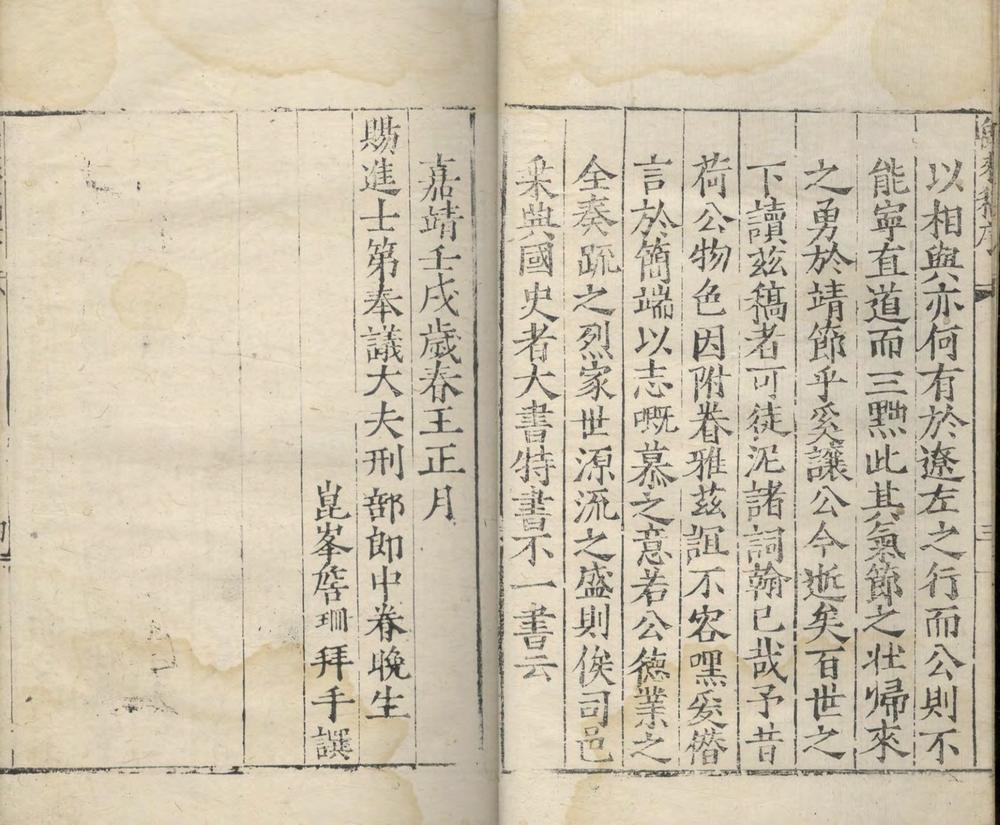 以相與亦何有於遼左之行而公則不
能寧直道而三黜此其氣節之壯歸來
之勇於靖節乎奚讓公今逝矣百世之
下讀茲稿者可徒泥諸詞翰已哉予昔
荷公物色因附眷雅茲誼不容嘿爰僭
言於簡端以志嘅慕之意若公德業之
全奏疏之烈家世源流之盛則俟司邑
乘與國史者大書特書不一書云
嘉靖壬戌歲春王正月
賜進士第奉議大夫刑部郎中眷晚生
崑峯詹珊拜手譔